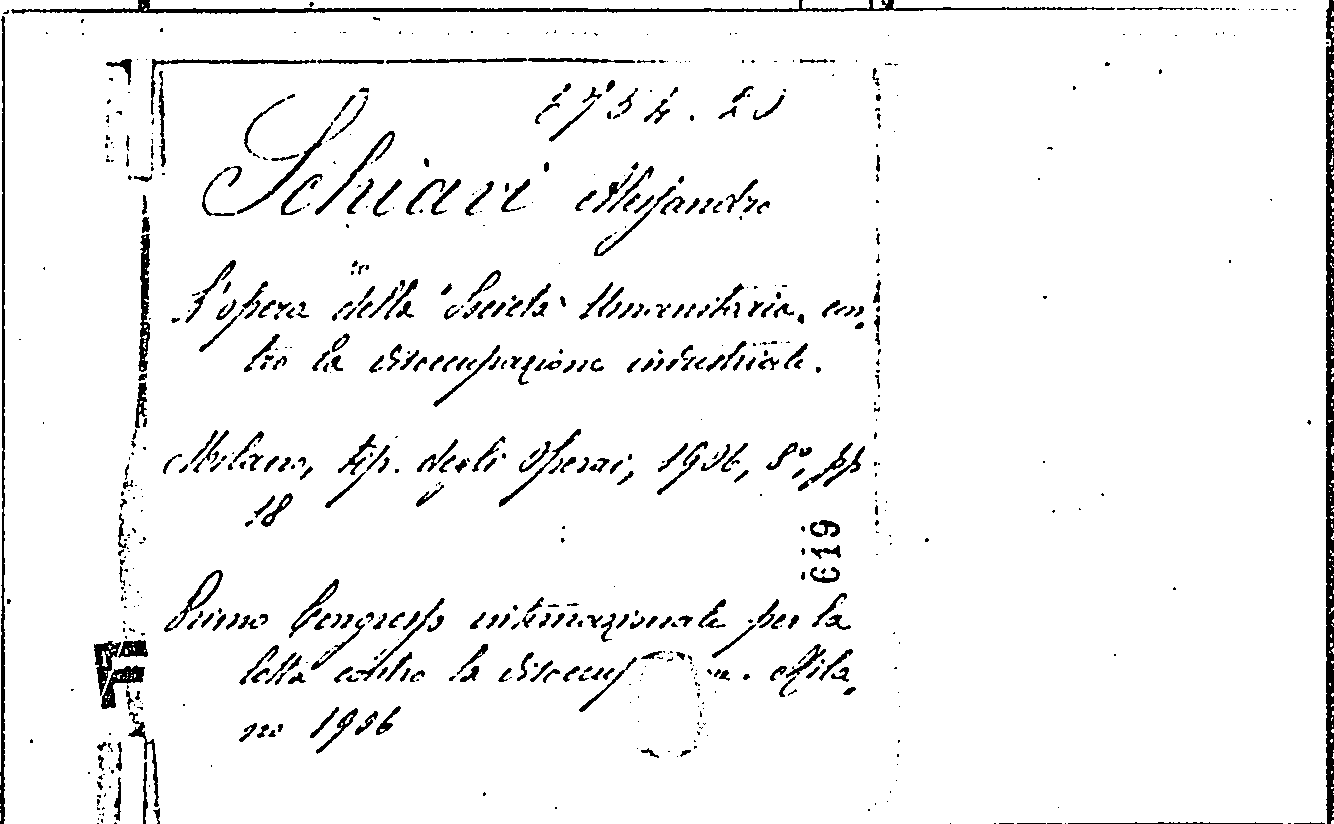 2754.20
Schiavi Alessandro
L'opera della "Società" Umanitaria, con-
tro la disoccupazione industriale.
Milano, tip. degli Operai, 1906, 8°, pp
18
619
Primo Congresso internazionale per la
lotta contro la disoccup ne. Mila-
no 1906